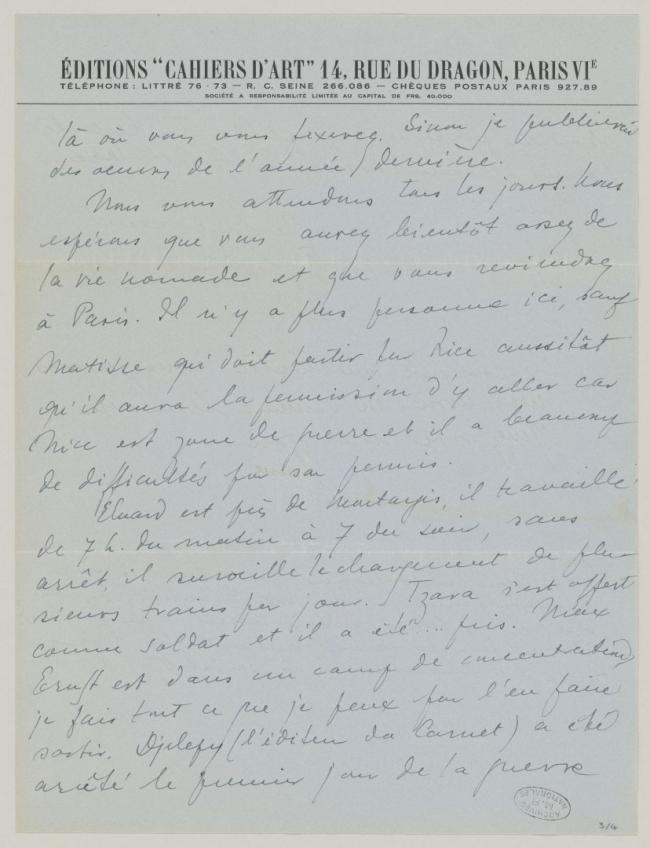 ÉDITIONS "CAHIERS D'ART" 14, RUE DU DRAGON, PARIS VIE
TÉLÉPHONE : LITTRÉ 76-73 — R. C. SEINE 266.086 — CHÈQUES POSTAUX PARIS 927.89
SOCIÉTÉ A RESPONSABILITÉ LIMITÉE AU CAPITAL DE FRS. 40.000
là où vous vous fixerez. Sinon je publierai
des oeuvres de l'année dernière.
Nous vous attendons tous les jours. Nous
espérons que vous aurez bientôt assez de
la vie nomade et que vous reviendrez
à Paris. Il n'y a plus personne ici, sauf
Matisse qui doit partir pour Nice aussitôt
qu'il aura la permission d'y aller car
Nice est zone de guerre et il a beaucoup
de difficultés pour son permis.
Eluard est près de Montargis, il travaille
de 7 h. du matin à 7 du soir, sans
arrêt, il surveille le chargement de plu-
sieurs trains par jour. Tzara s'est offert
comme soldat et il a été... pris. Max
Ernst est dans un camp de concentration,
je fais tout ce que je peux pour l'en faire
sortir. (l'éditeur du Carnet) a été
arrêté le premier jour de la guerre
ARCHIVES
M. P.
NATIONALES
3/4